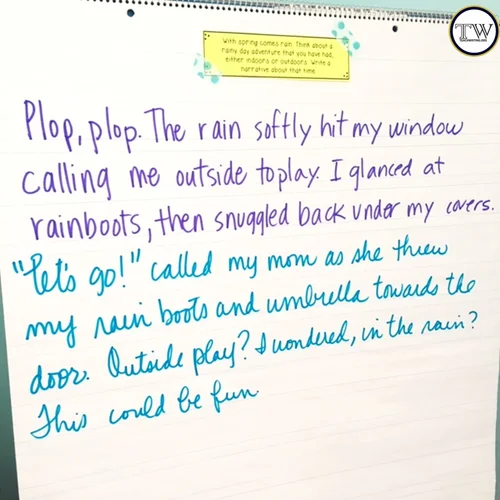 TW
With spring comes rain. Think about a
rainy day adventure that you have had,
either indoors or outdoors. Write a
narrative about that time.
Plop, plop. The rain softly hit my window
calling me outside to play. I glanced at
rainboots, then snuggled back under my covers.
"Let's go!" called my mom as she threw
my rain boots and umbrella towards the
door. Outside play? I wondered, in the rain?
This could be fun.